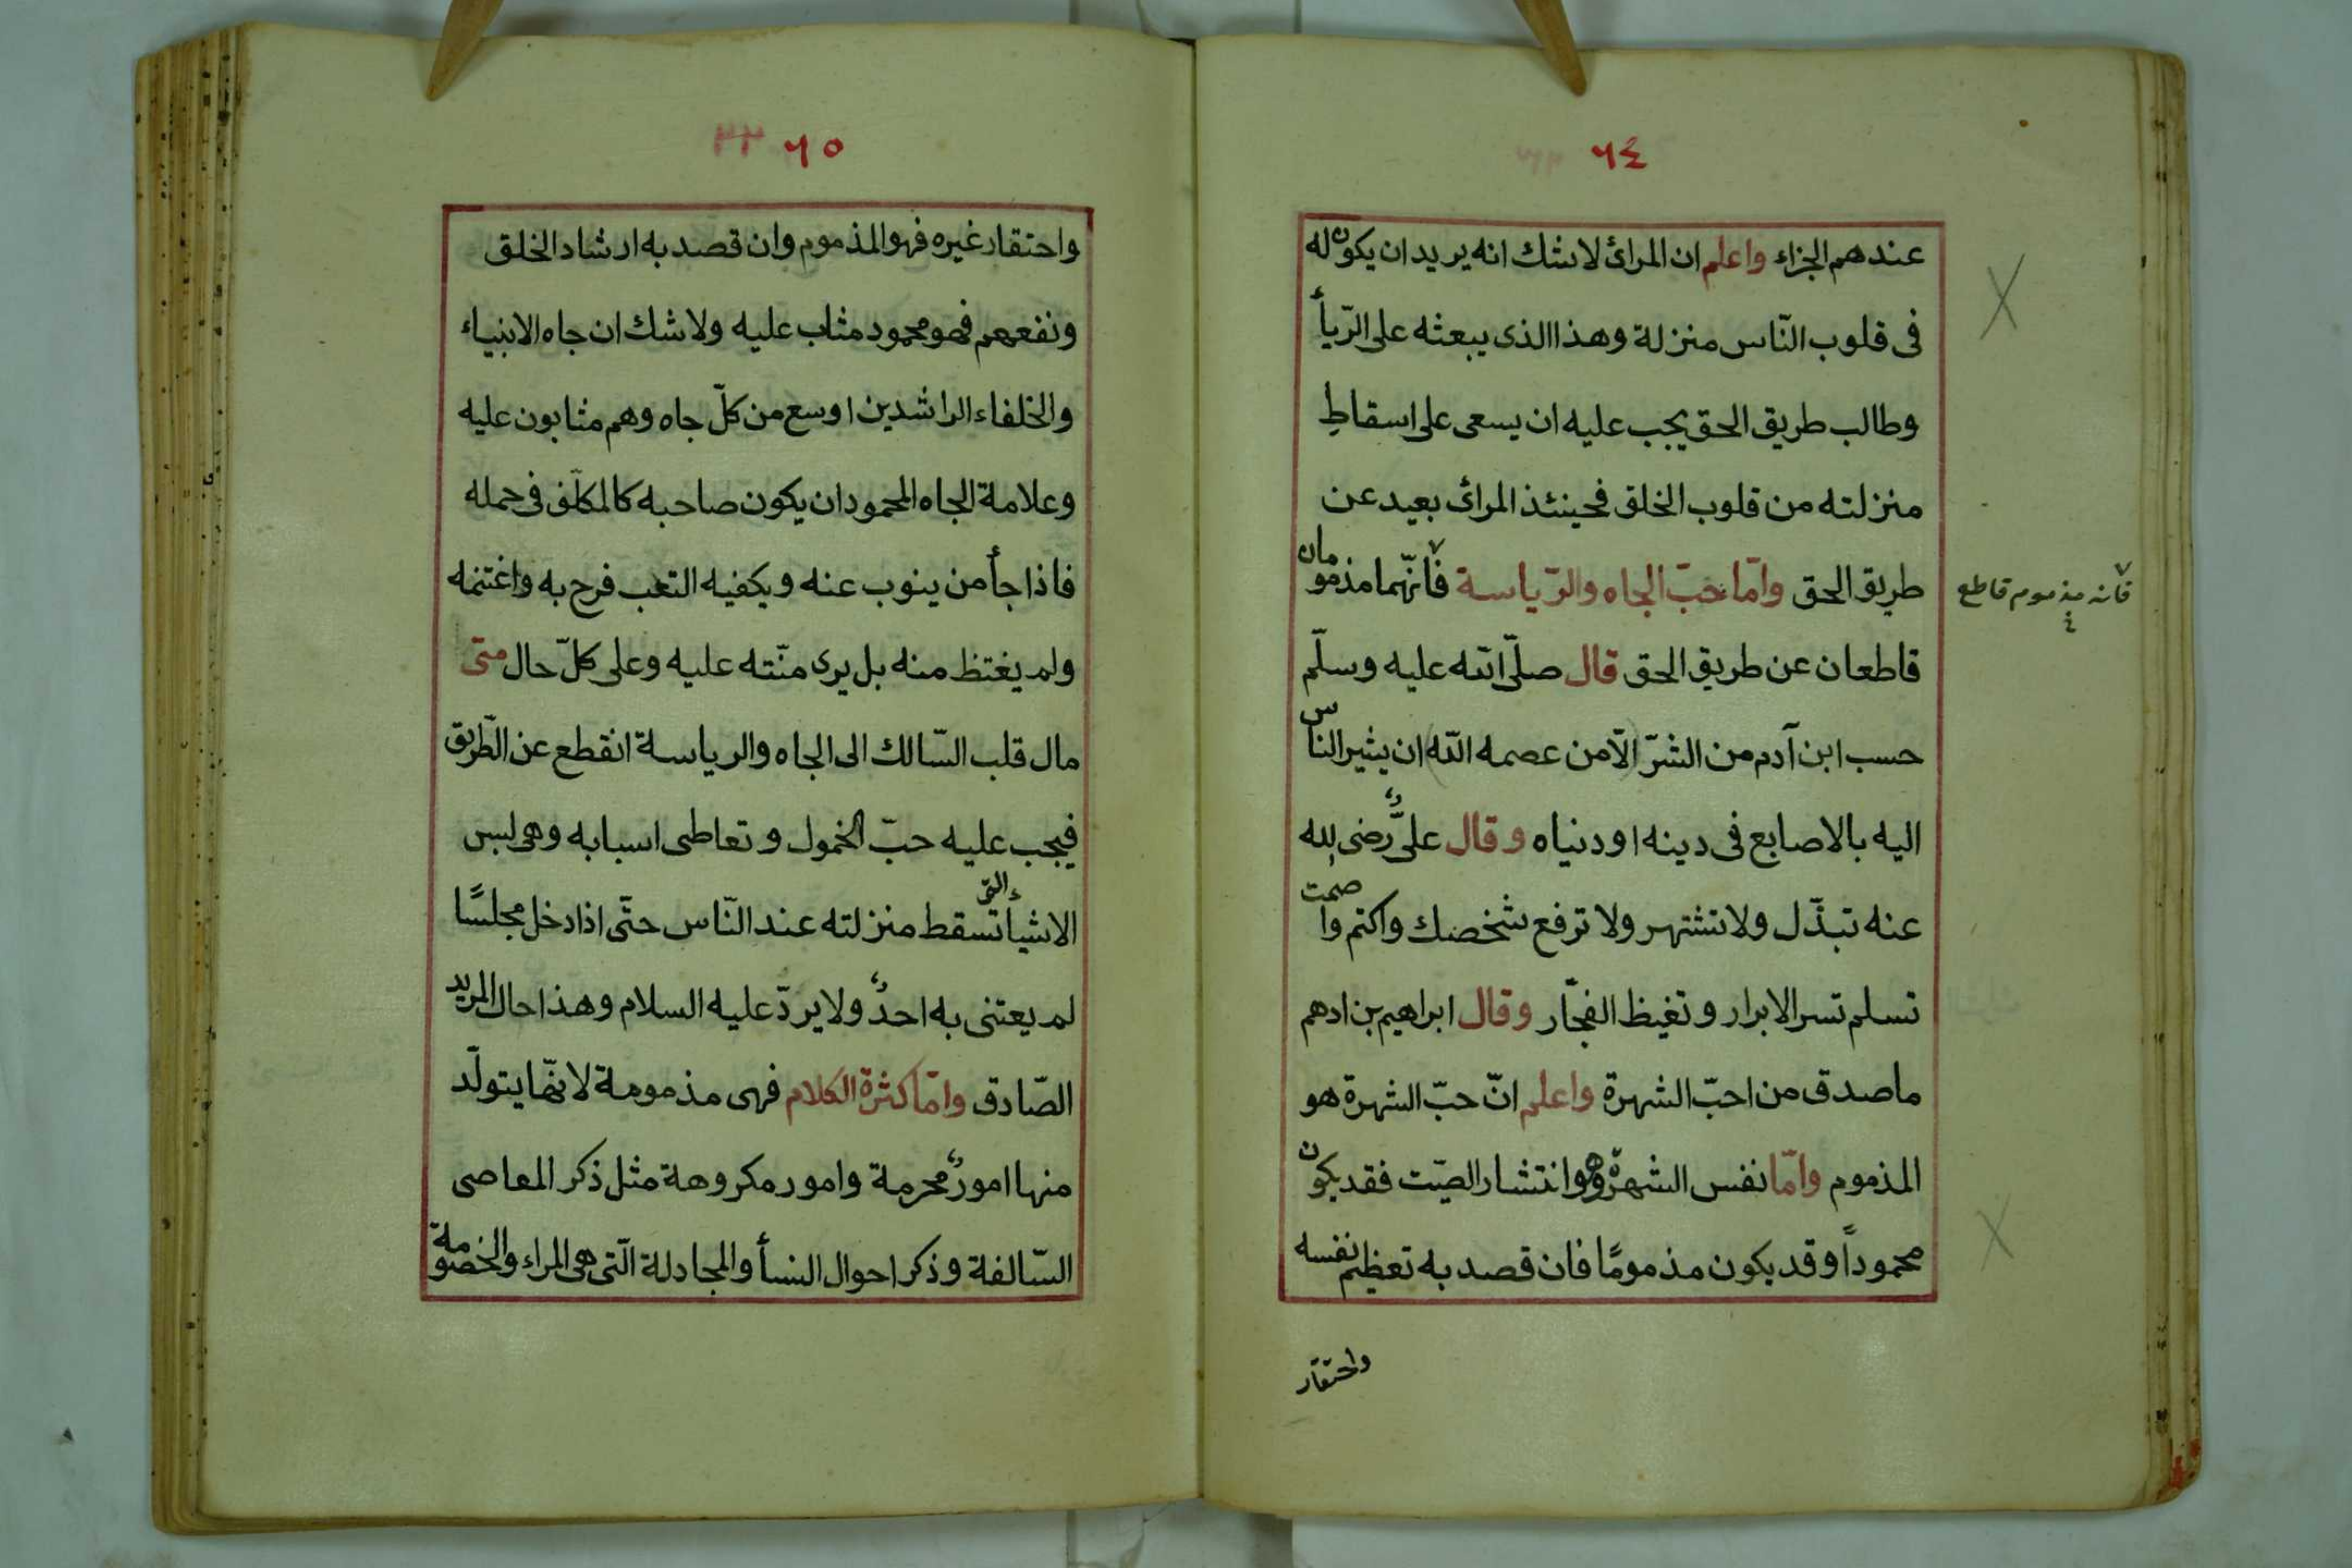 ٦٤
عندهم الجزاء واعلم ان المرائ لاشك انه يريد ان يكون له
فى قلوب النّاس منزلة وهذا الذى يبعثه على الرّيأ
وطالب طريق الحق يجب عليه ان يسعى على اسقاطِ
منزلته من قلوب الخلق فحينئذ المرائى بعيد عن
طريق الحق وامّا حبّ الجاه والرّياسة فانّهما مذمومان
فانه مذموم قاطع
قاطعان عن طريق الحق قال صلّى الله عليه وسلّم
حسب ابن آدم من الشرّ الّا من عصمه الله ان يشير الناس
اليه بالاصابع فى دينه او دنياه وقال علىٌّ رضى الله
عنه تبذّل ولا تشتهر ولا ترفع شخصك واكتم واصمت
تسلم تسر الابرار وتغيظ الفجّار وقال ابراهيم بن ادهم
ما صدق من احبّ الشهرة واعلم انّ حبّ الشهرة هو
المذموم وامّا نفس الشهرة وهو انتشار الصّيت فقد يكون
محموداً وقد يكون مذمومًا فان قصد به تعظيم نفسه
واحتقار
٦٥
واحتقار غيره فهو المذموم وان قصد به ارشاد الخلق
ونفعهم فهو محمود مثاب عليه ولا شك ان جاه الانبياء
والخلفاء الراشدين اوسع من كلّ جاه وهم مثابون عليه
وعلامة الجاه المحمود ان يكون صاحبه كالمكلّف فى حمله
فاذا جأ من ينوب عنه ويكفيه التعب فرح به واغتنمه
ولم يغتظ منه بل يرى منّته عليه وعلى كلّ حال متى
مال قلب السّالك الى الجاه والرياسة انقطع عن الطّريق
فيجب عليه حبّ الخمول وتعاطى اسبابه وهى لبس
الاشياء التى تسقط منزلته عند النّاس حتّى اذا دخل مجلسًا
لم يعتنى به احدٌ ولا يردّ عليه السلام وهذا حال المريد
الصّادق وامّا كثرة الكلام فهى مذمومة لانّها يتولّد
منها امورٌ محرمة وامور مكروهة مثل ذكر المعاصى
السّالفة وذكر احوال النسأ والمجادلة الّتى هى المراء والخصومة